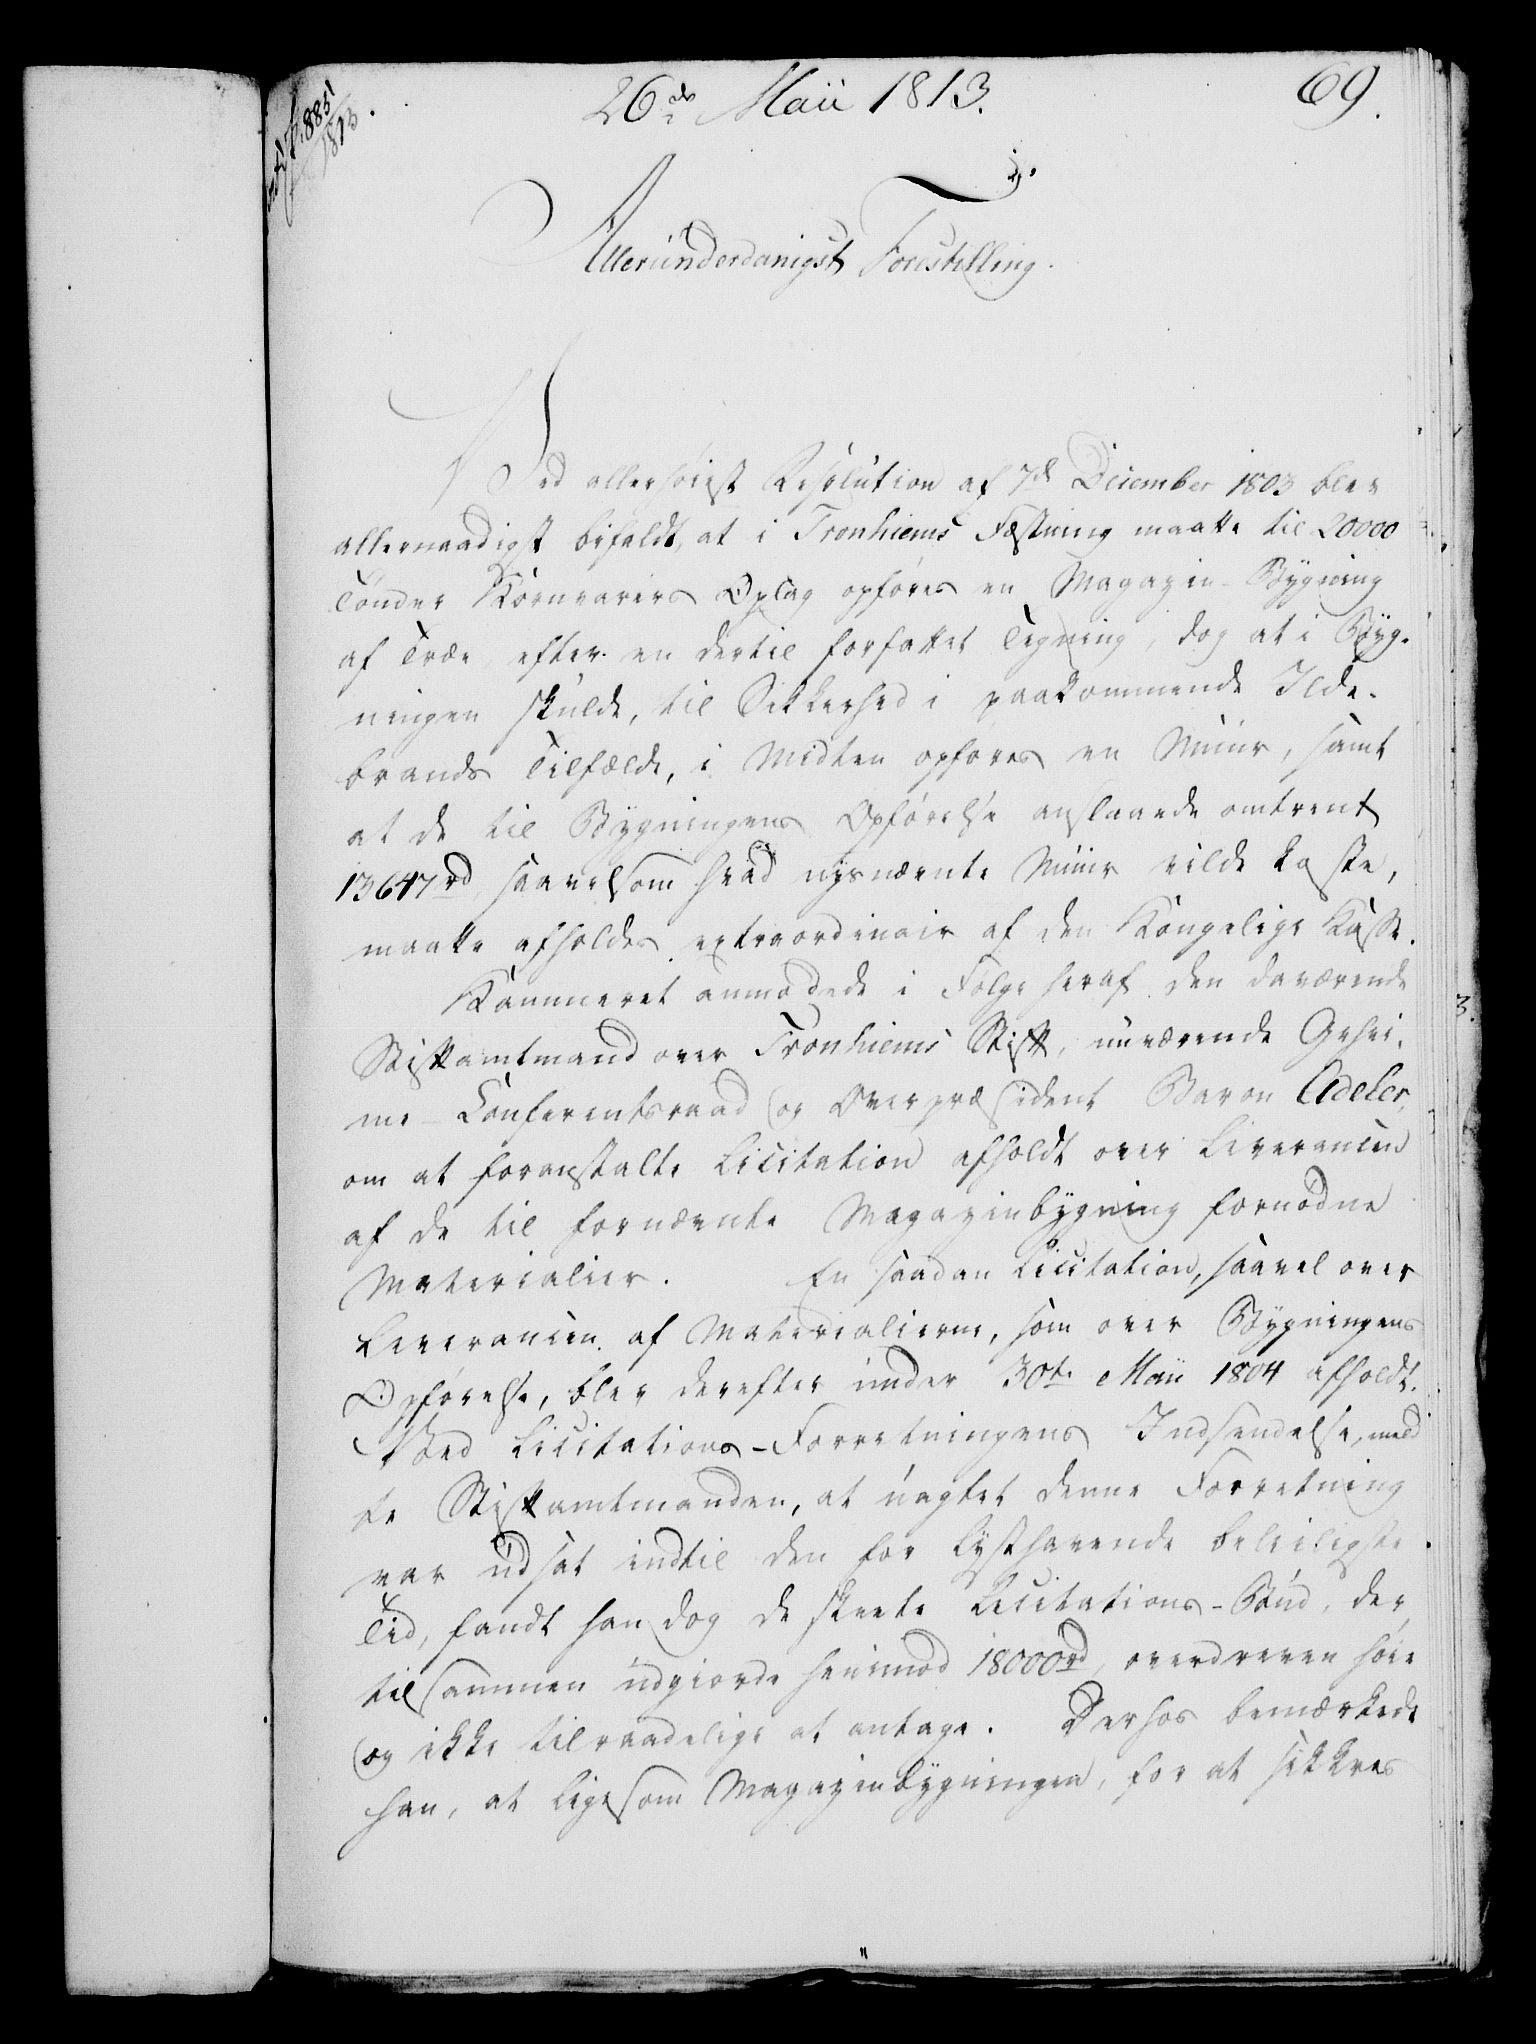 26de Maii 1813.
69.
J. 8851
1813.
Allerunderdanigst Forestilling.
Ved allerhøiest Resolution af 7d December 1803 blev
allernaadigst bifaldt, at i Tronhiems Fæstning maatte til 20000
Tønder Kornvarers Oplag opføres en Magazin-Bygning
af Træe, efter en dertil forfattet Tegning, dog at i Byg-
ningen skulde, til Sikkerhed i paakommende Ilde-
brands Tilfælde, i Midten opføres en Muur, samt
at de til Bygningens Opførelse anslaaede omtrent
13647rd, saavelsom hvad nysnævnte Muur vilde koste,
maatte afholdes extraordinair af den Kongelige Kasse.
Kammeret anmodede i Følge heraf den daværende
Stiftamtmand over Tronhiems Stift, nuværende Gehei-
me-Conferentsraad og Overpræsident Baron Adeler,
om at foranstalte Licitation afholdt over Leverancen
af de til fornævnte Magazinbygning fornødne
Materialier. En saadan Licitation, saavel over
Leverancen af Materialierne, som over Bygningens
Opførelse, blev derefter under 30te Maii 1804 afholdt.
Ved Licitations-Forretningens Indsendelse, meld
te Stiftamtmanden, at uagtet denne Forretning
var udsat indtil den for Lysthavende beleiligste
Tid, fandt han dog de skeete Licitations-Bud, der
tilsammen udgiorde henimod 18000rd, overdreven høie
og ikke tilraadelige at antage. Derhos bemærkede
han, at ligesom Magazinbygningen, for at sikkres